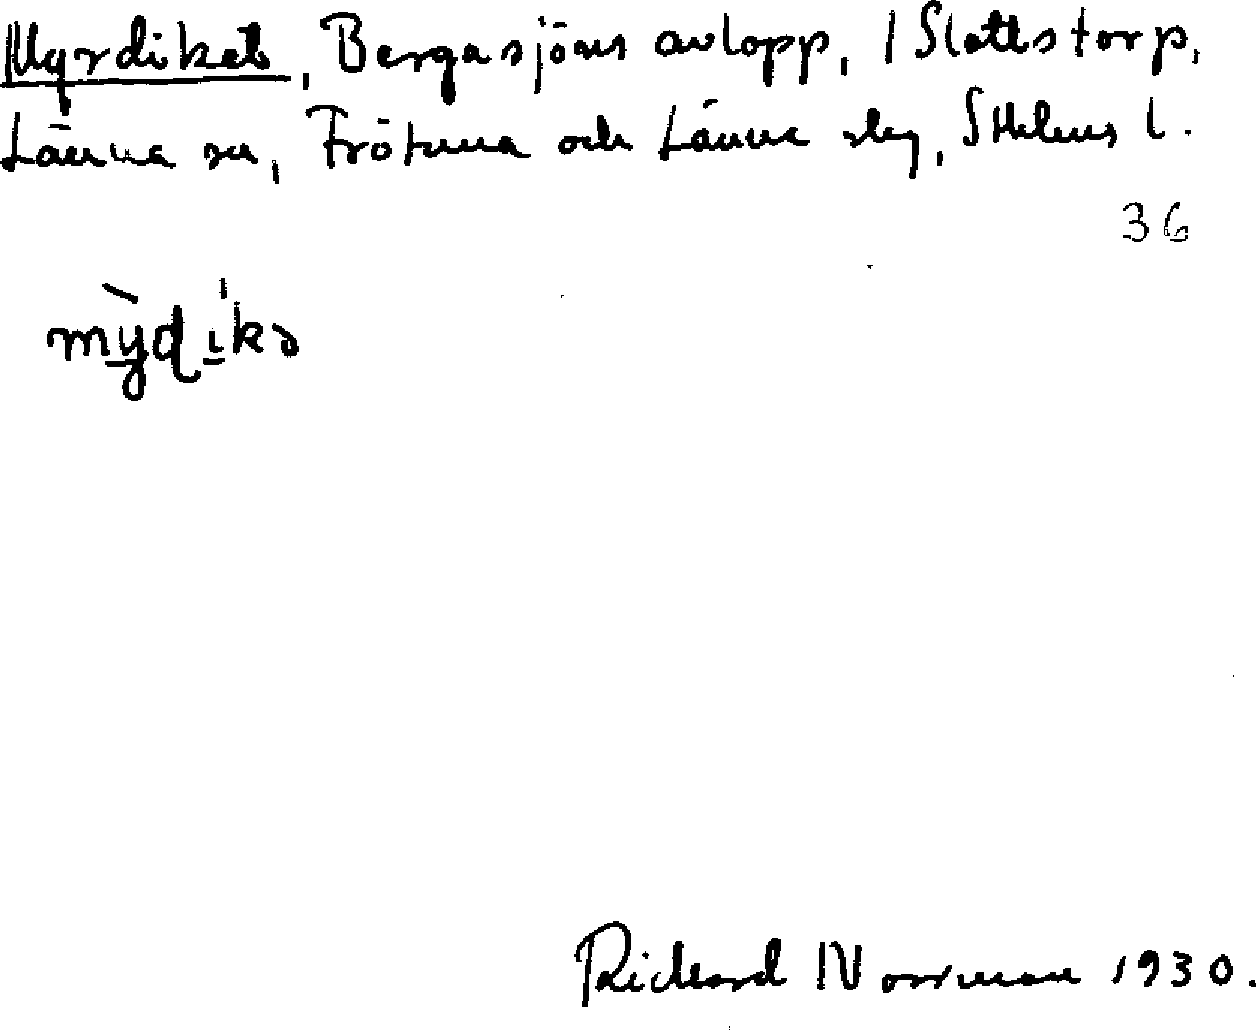 Myrdiket, Bergasjöns avlopp, / Slottstorp,
Länna sn, Frötuna och Länna skg, Sthlms l.
36
mỳḍi̱kə
Richard Norrman 1930.